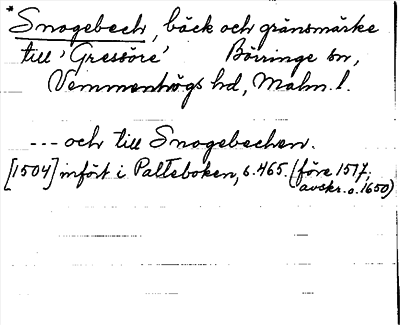 * Snogebech, bäck och gränsmärke
till 'Gressöre' Börringe sn,
Vemmenhögs hd, Malm. l.
--- och till Snogebechen.
[1504] infört i Palteboken, s. 465. (före 1517;
avskr. o. 1650)